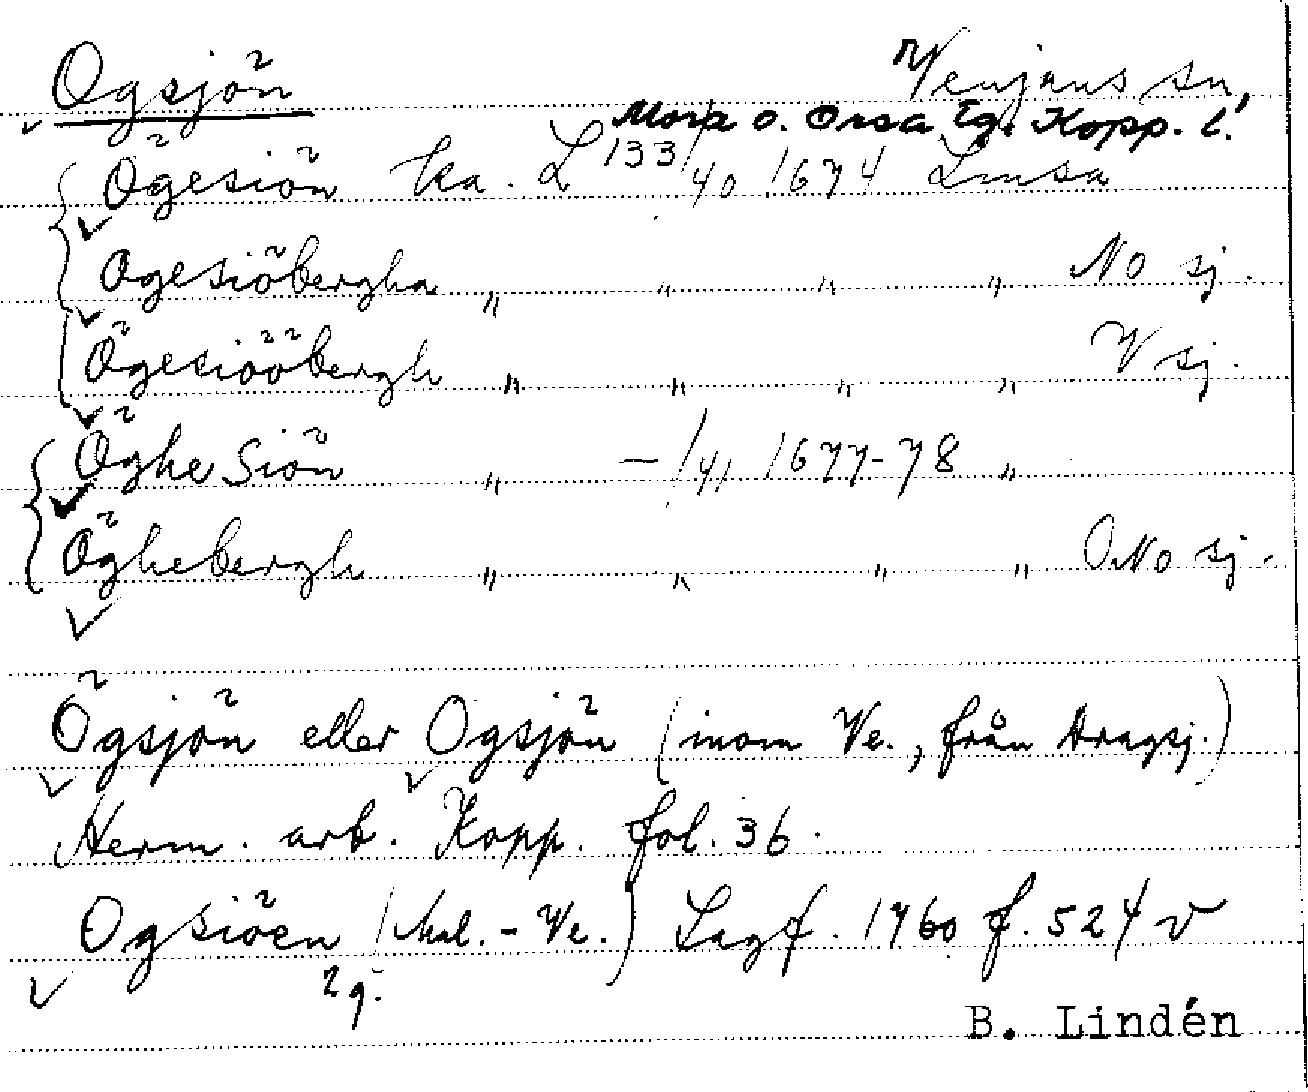 Ogsjön Venjans sn,
Mora o. Orsa tg. Kopp. l.
Ögesiön ka. L 133/40 1674 Lmsa
Ogesiöbergha " " " " NO sj.
Ögesiööbergh " " " " V sj.
Öghe Siön " —/41 1677-78 "
Öghebergh " " " " ONO sj.
Ögsjön eller Ogsjön (inom Ve., från Dragsj.)
Herm. arb. Kopp. fol. 36.
Ogsiöen (Mal. - Ve.) Lagf. 1760 f. 524 v
2 g.
B. Lindén